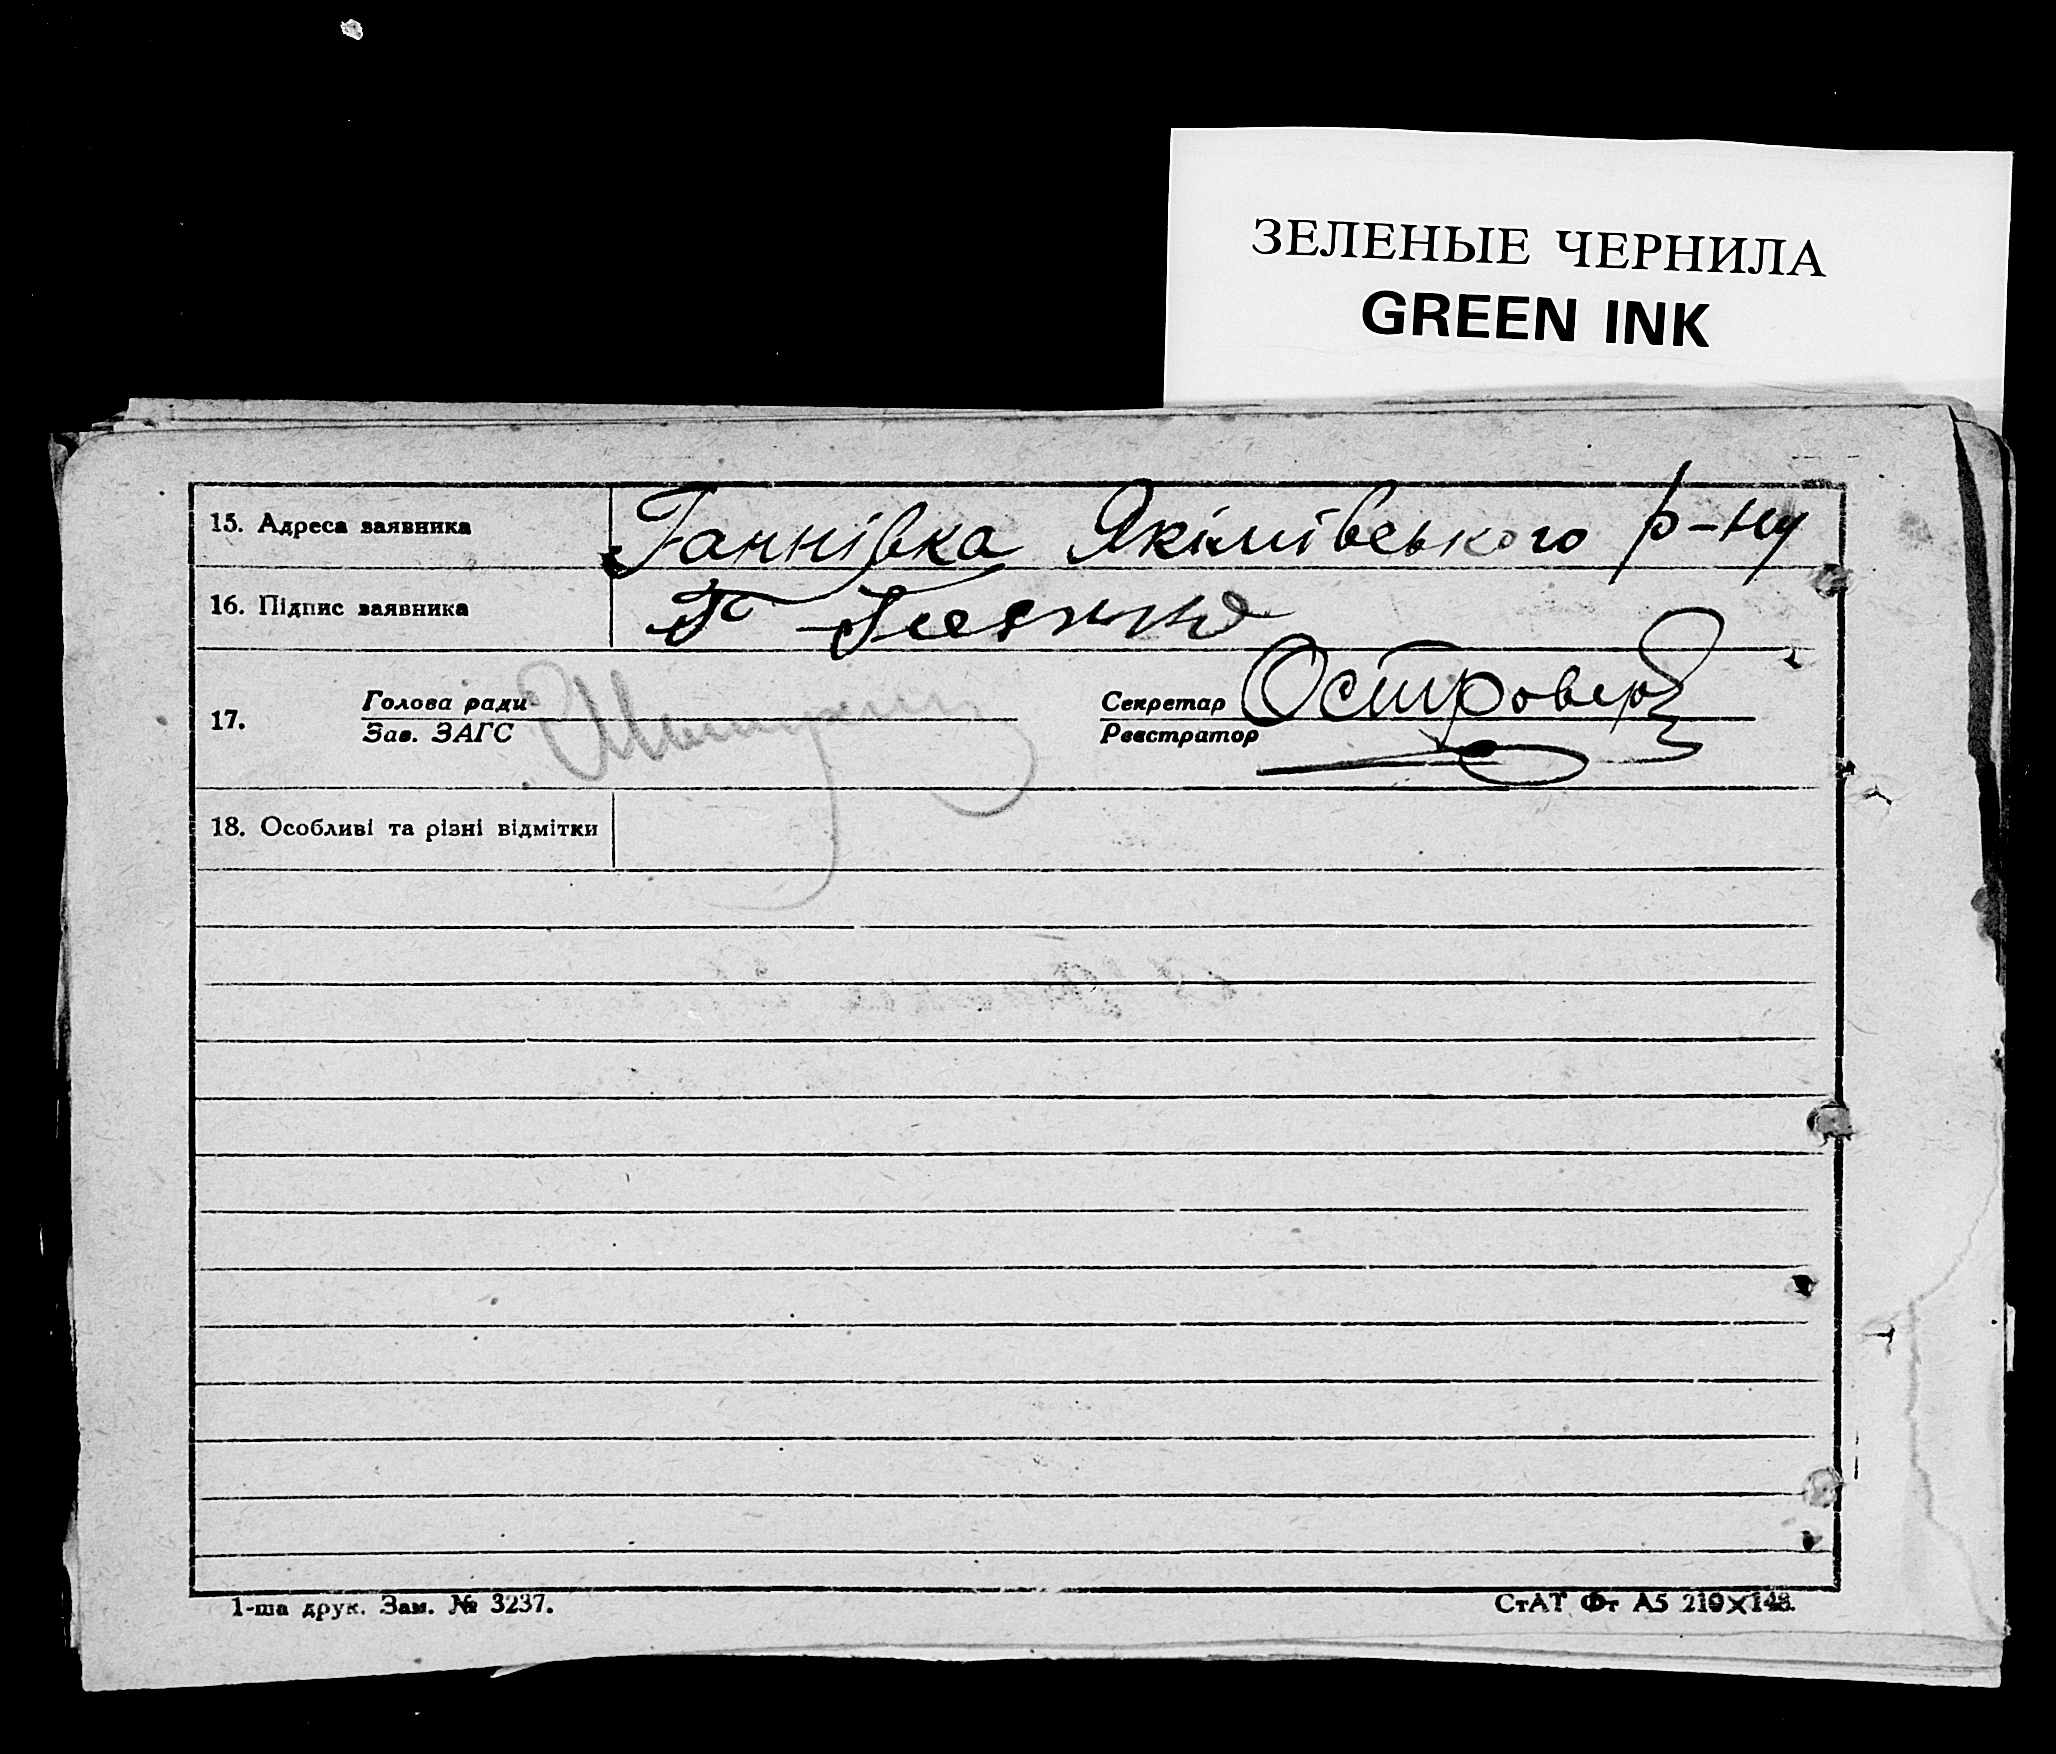 ЗЕЛЕНЫЕ ЧЕРНИЛА
GREEN INK
15. Адреса заявника Ганнівка Якімівського р-ну
16. Підпис заявника
17. Голова ради Секретар Островер
Зав. ЗАГС Реєстратор
18. Особливі та різні відмітки
1-ша друк. Зам. № 3237.
СтАТ Фт А5 210×148.